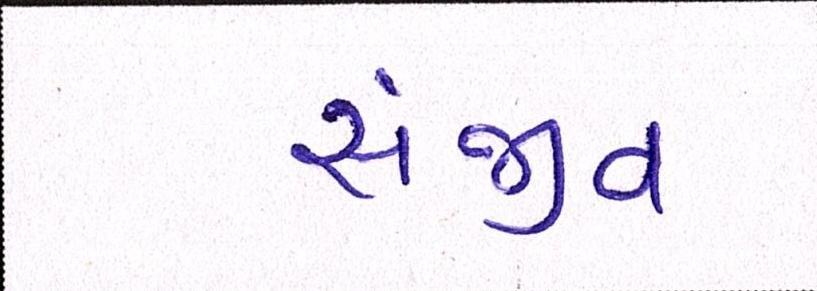 સંજીવ